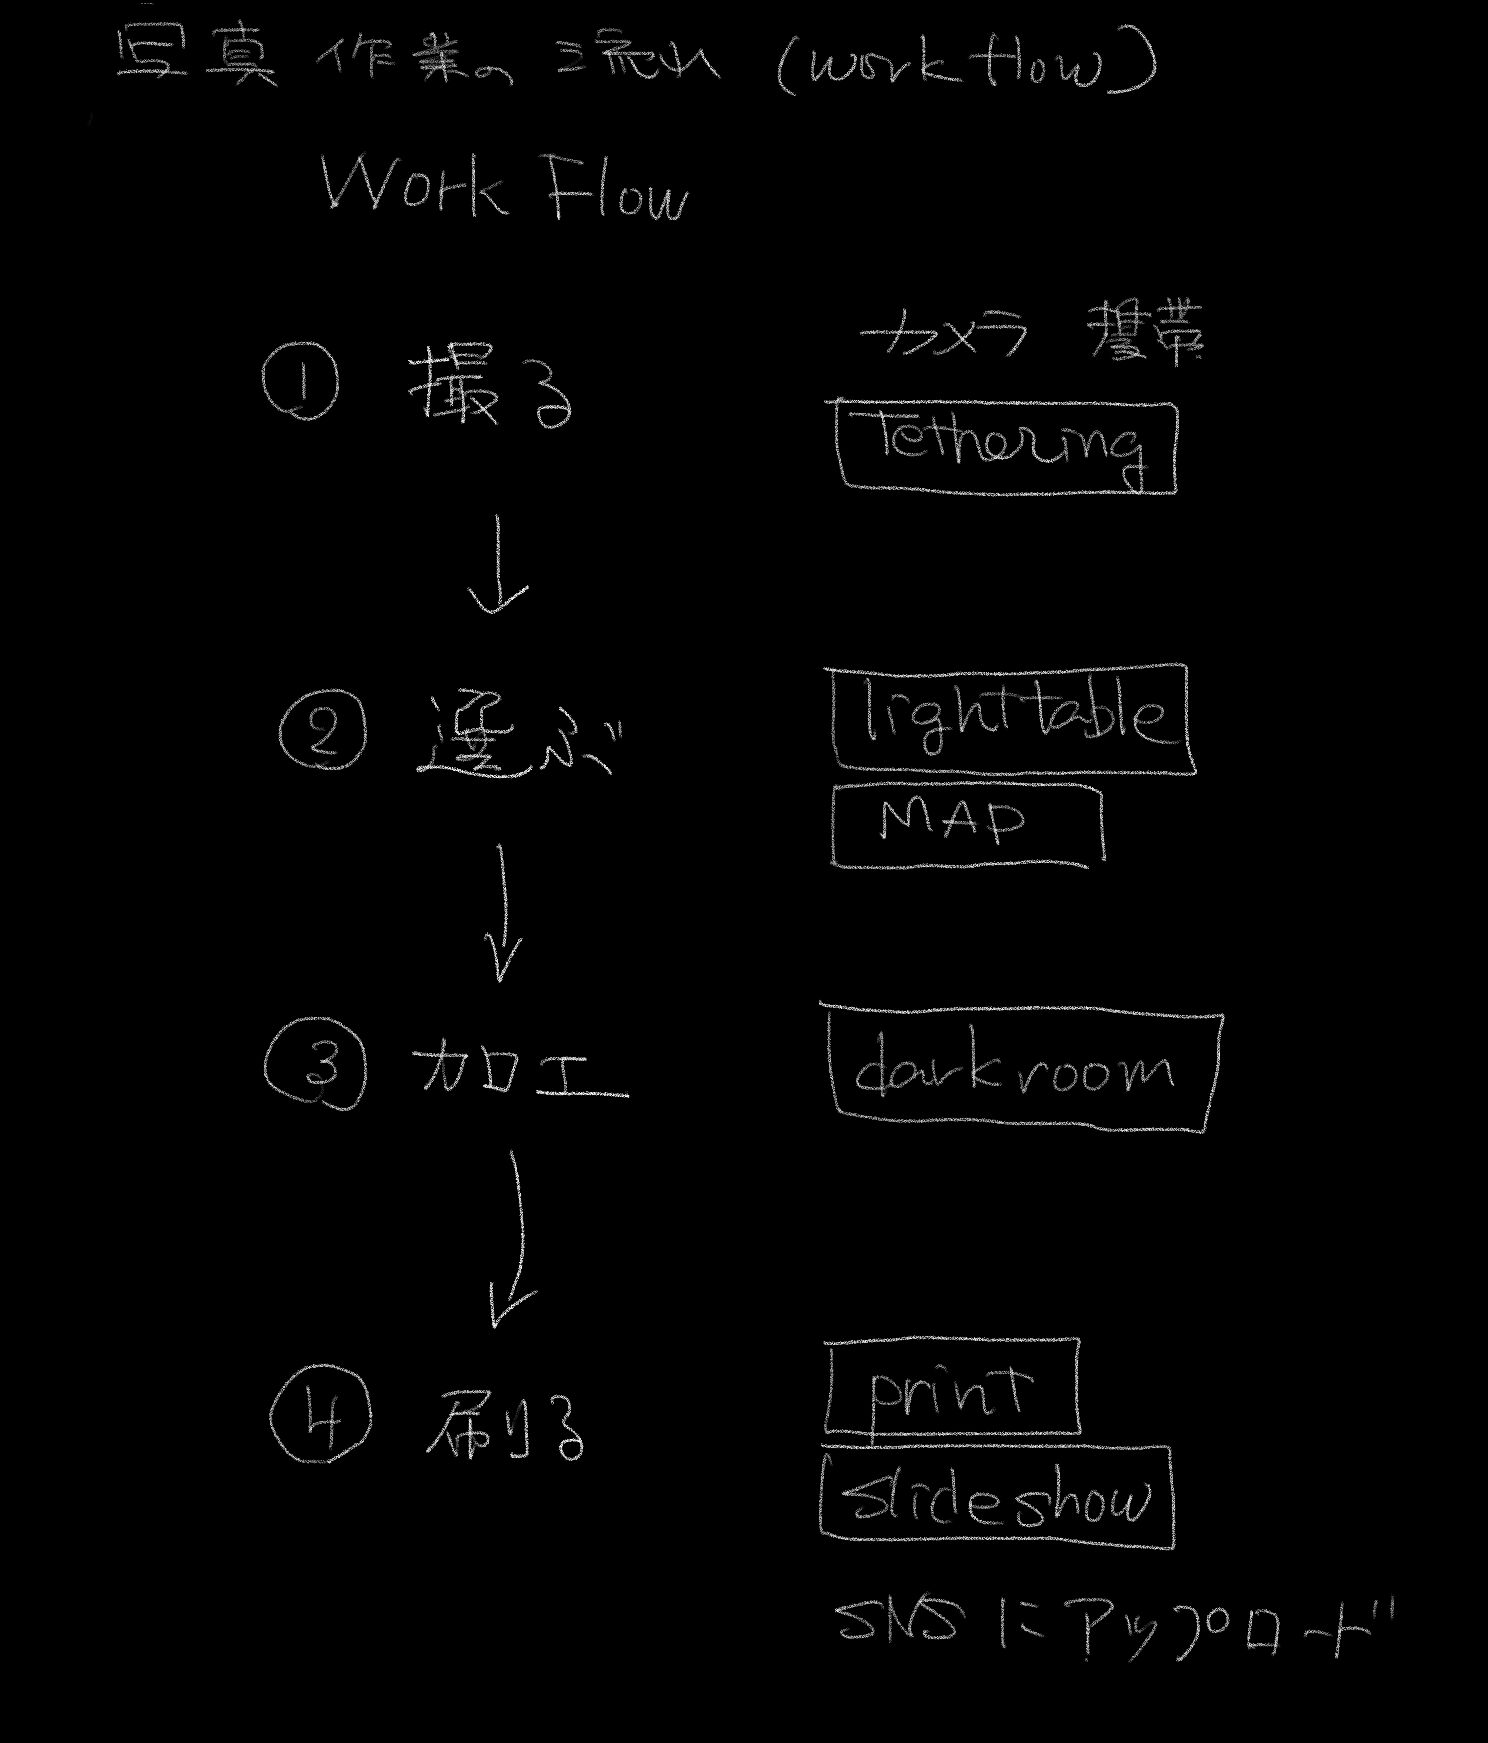 写真 作業の 流れ (workflow)
Work Flow
① 撮る
カメラ 携帯
Tethering
② 選ぶ
lighttable
MAP
③ 加工
darkroom
④ 刷る
print
slideshow
SNSにアップロード